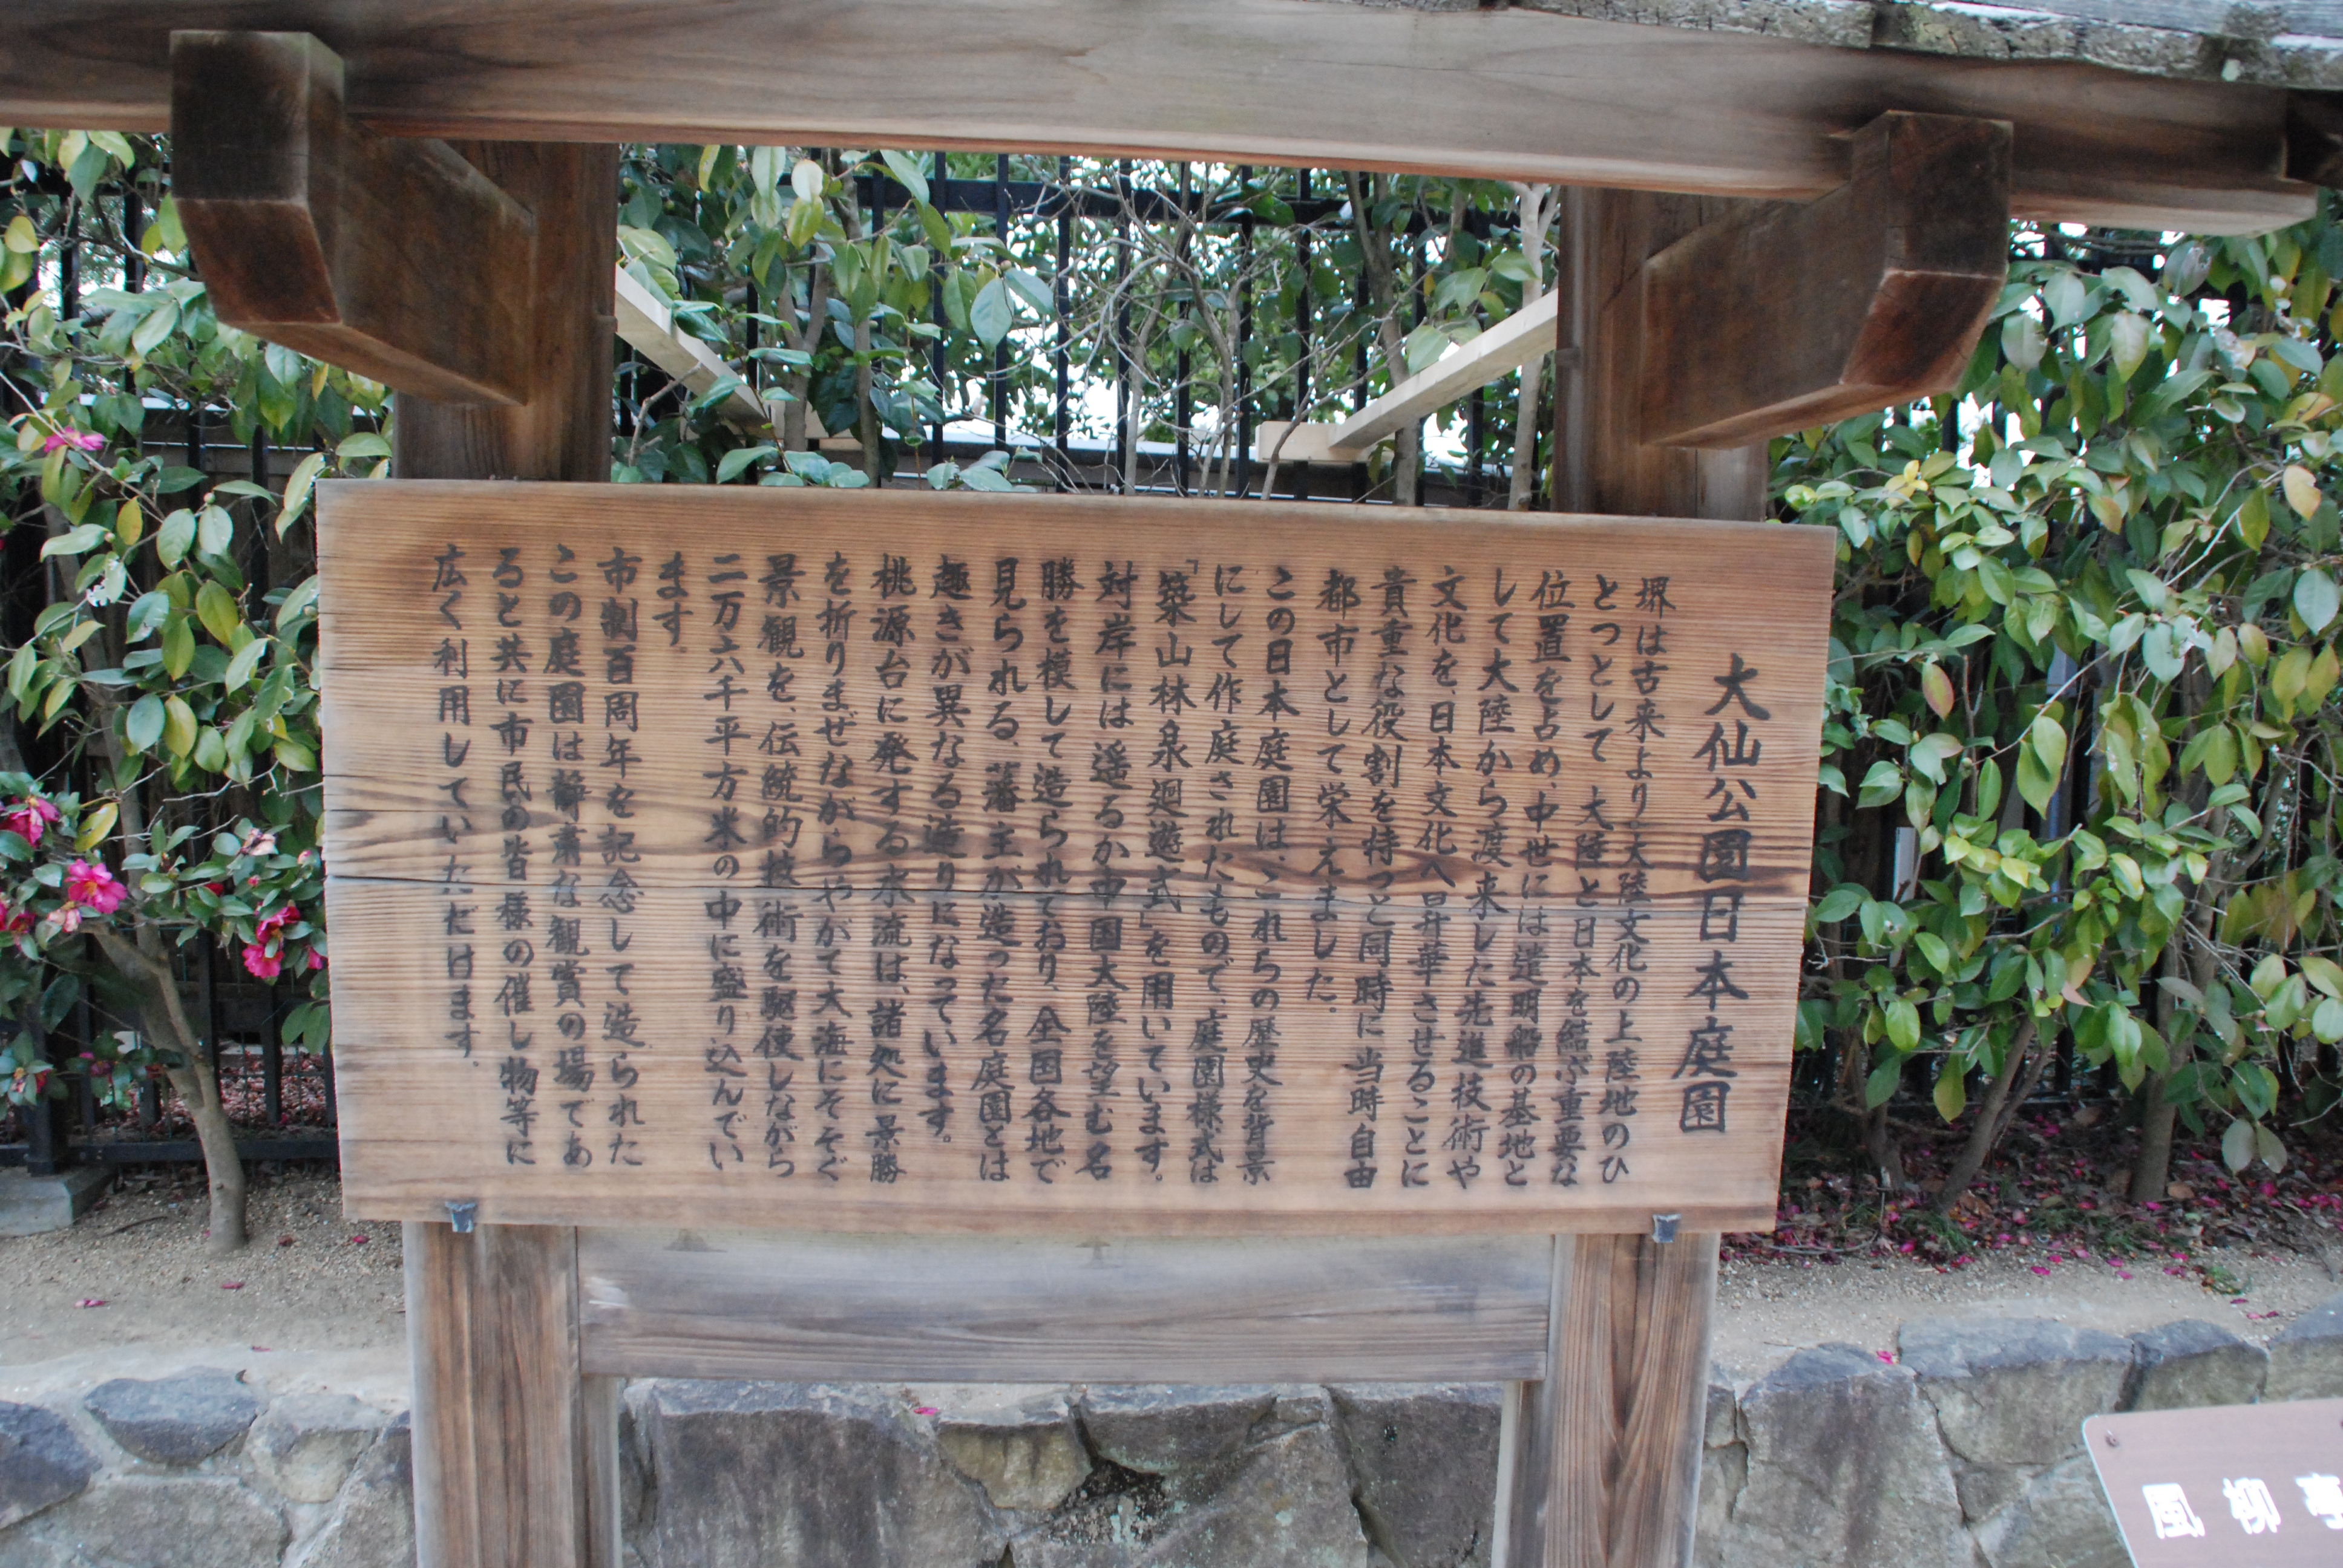 大仙公園日本庭園
堺は古来より大陸文化の上陸地のひ
とつとして大陸と日本を結ぶ重要な
位置を占め、中世には遣明船の基地と
して大陸から渡来した先進技術や
文化を、日本文化へ昇華させることに
貴重な役割を持つと同時に当時自由
都市として栄えました。
この日本庭園は、これらの歴史を背景
にして作庭されたもので、庭園様式は
「築山林泉廻遊式」を用いています。
対岸には遙るか中国大陸を望む名
勝を模して造られており、全国各地で
見られる、藩主が造った名庭園とは
趣きが異なる造りになっています。
桃源台に発する水流は、諸処に景勝
を折りまぜながらやがて大海にそそぐ
景観を、伝統的技術を駆使しながら
二万六千平方米の中に盛り込んでい
ます。
市制百周年を記念して造られた
この庭園は静粛な観賞の場であ
ると共に市民の皆様の催し物等に
広く利用していただけます。
風柳亭